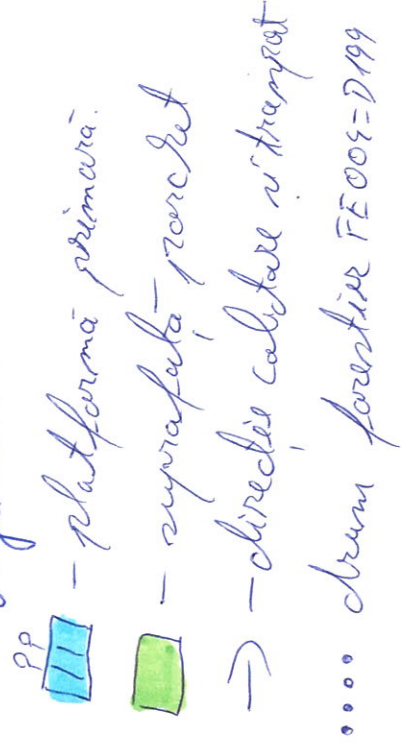 PP
- platformă primară.
- suprafață parchet
→ - direcție colectare și transport
.... drum forestier FE009=D199